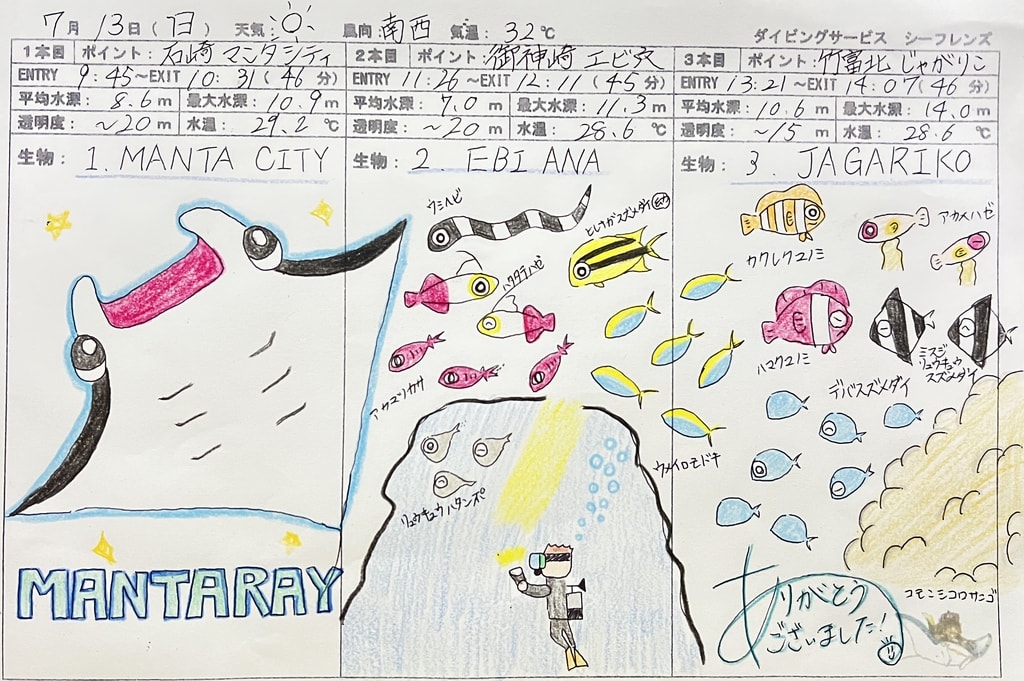 7月13日(日) 天気: 風向:南西 気温:32℃
ダイビングサービス シーフレンズ
1本目 ポイント:石崎 マンタシティ
ENTRY 9:45~EXIT 10:31(46分)
平均水深:8.6m 最大水深:10.9m
透明度:~20m 水温:29.2℃
生物: 1. MANTA CITY
MANTARAY
2本目 ポイント:御神崎 エビ穴
ENTRY 11:26~EXIT 12:11(45分)
平均水深:7.0m 最大水深:11.3m
透明度:~20m 水温:28.6℃
生物: 2 EBI ANA
ウミヘビ
ヒレナガスズメダイ
ハタタテハゼ
アカマツカサ
ウメイロモドキ
リュウキュウハタンポ
3本目 ポイント:竹富北 じゃがりこ
ENTRY 13:21~EXIT 14:07(46分)
平均水深:10.6m 最大水深:14.0m
透明度:~15m 水温:28.6℃
生物: 3. JAGARIKO
カクレクマノミ
アカメハゼ
ハマクマノミ
ミスジ
リュウキュウ
スズメダイ
デバスズメダイ
コモンシコロサンゴ
ありがとう
ございました!